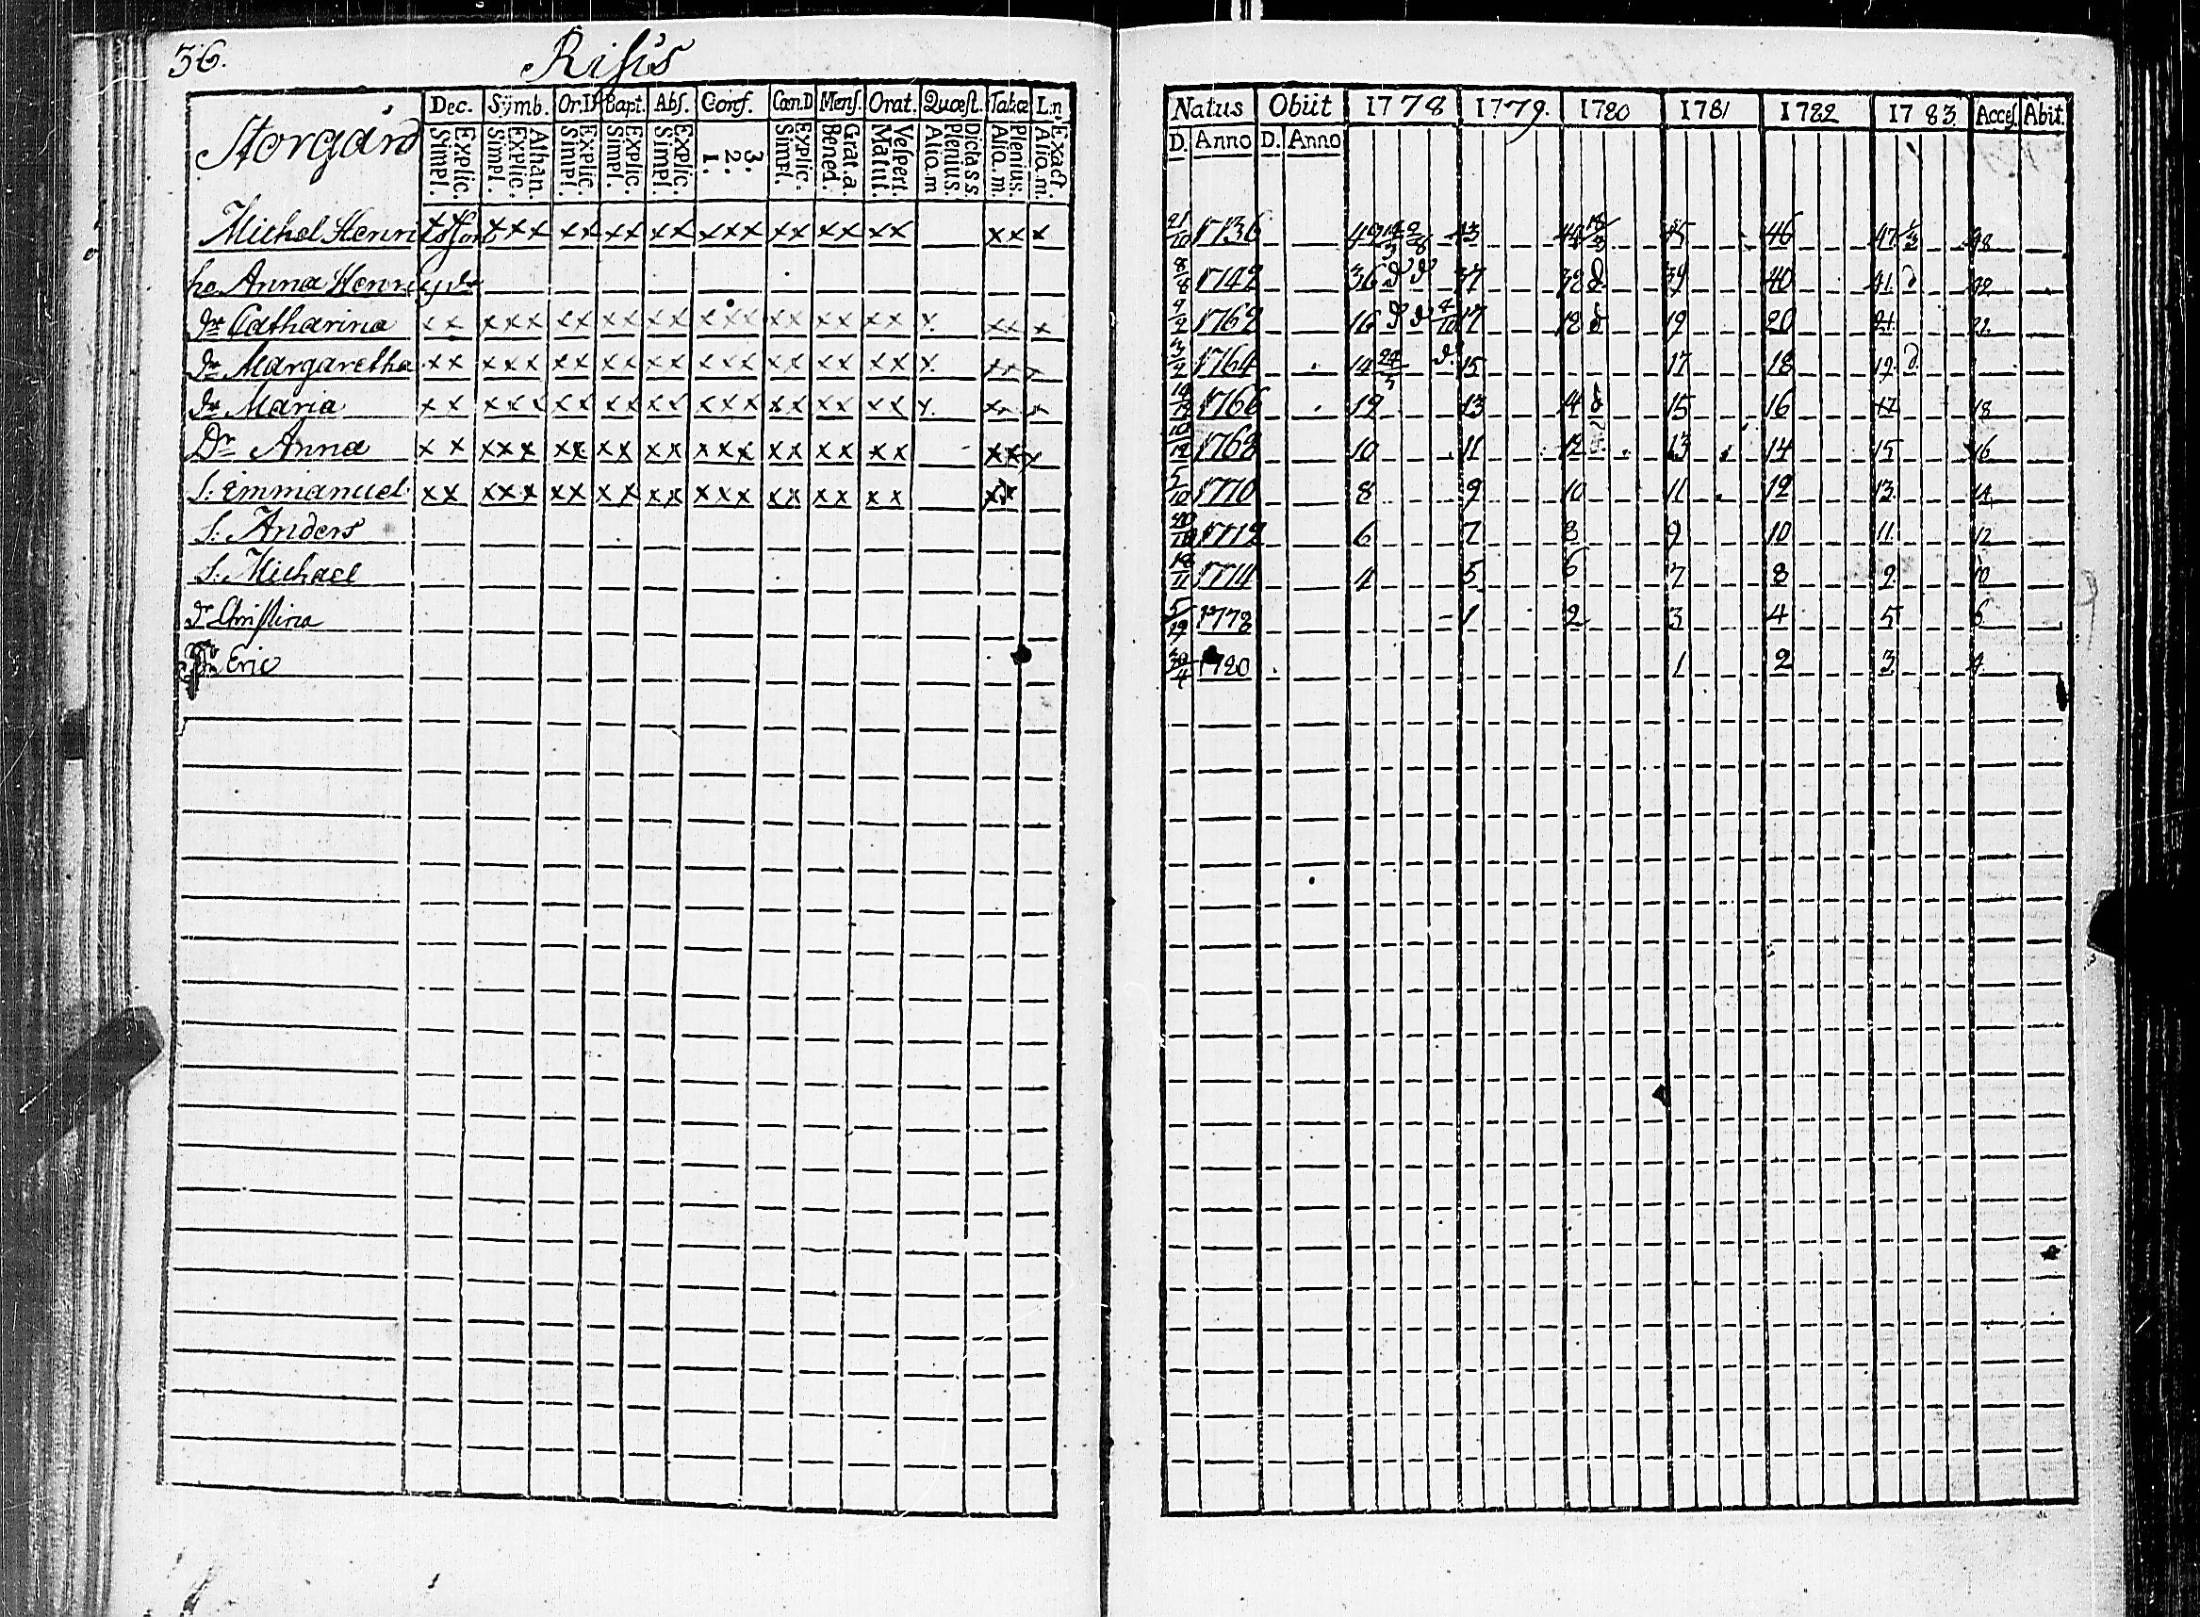 36. Risis
Storgård
Dec. Sÿmb. Or.D. Bapt. Abs. Conf. Cœn.D Mens. Orat. Quæst. Tabæ L:n:
Simpl. Explic. Simpl. Explic. Athan. Simpl. Explic. Simpl. Explic. Simpl. Explic. 1. 2. 3. Simpl. Explic. Bened. Grat. a. Matut. Vespert. Aliq. m Plenius. Dicta s s. Aliq. m. Plenius. Aliq. m. Exact.
Natus Obiit 1778 1779. 1780 1781 1782 1783 Acces. Abit.
D. Anno D. Anno
Michel Henricsson x x x x x x x x x x x x x x x x x x x x x x x 21/10 1736 42 43 44 18/3 45 46 47 48
h. Anna Henricsdr 8/8 1742 36 d d 37 38 d 39 40 41 d 42
dr Catharina x x x x x x x x x x x x x x x x x x x x x x x x 1762 16 d d 17 18 d 19 20 21 22
dr Margaretha x x x x x x x x x x x x x x x x x x x x x x x x 1764 14 d. 15 17 18 19 d
dr Maria x x x x x x x x x x x x x x x x x x x x x x x x 1766 12 13 14 d 15 16 17 18
Dr Anna x x x x x x x x x x x x x x x x x x x x x x x 1768 10 11 12 13 14 15 16
S. Emmanuel x x x x x x x x x x x x x x x x x x x x x x 5/12 1770 8 9 10 11 12 13 14
S. Anders 1772 6 7 8 9 10 11 12
S. Michael 18/11 1774 4 5 6 7 8 9 10
dr Christina 1778 1 2 3 4 5 6
Eric 30/4 1780 1 2 3 4